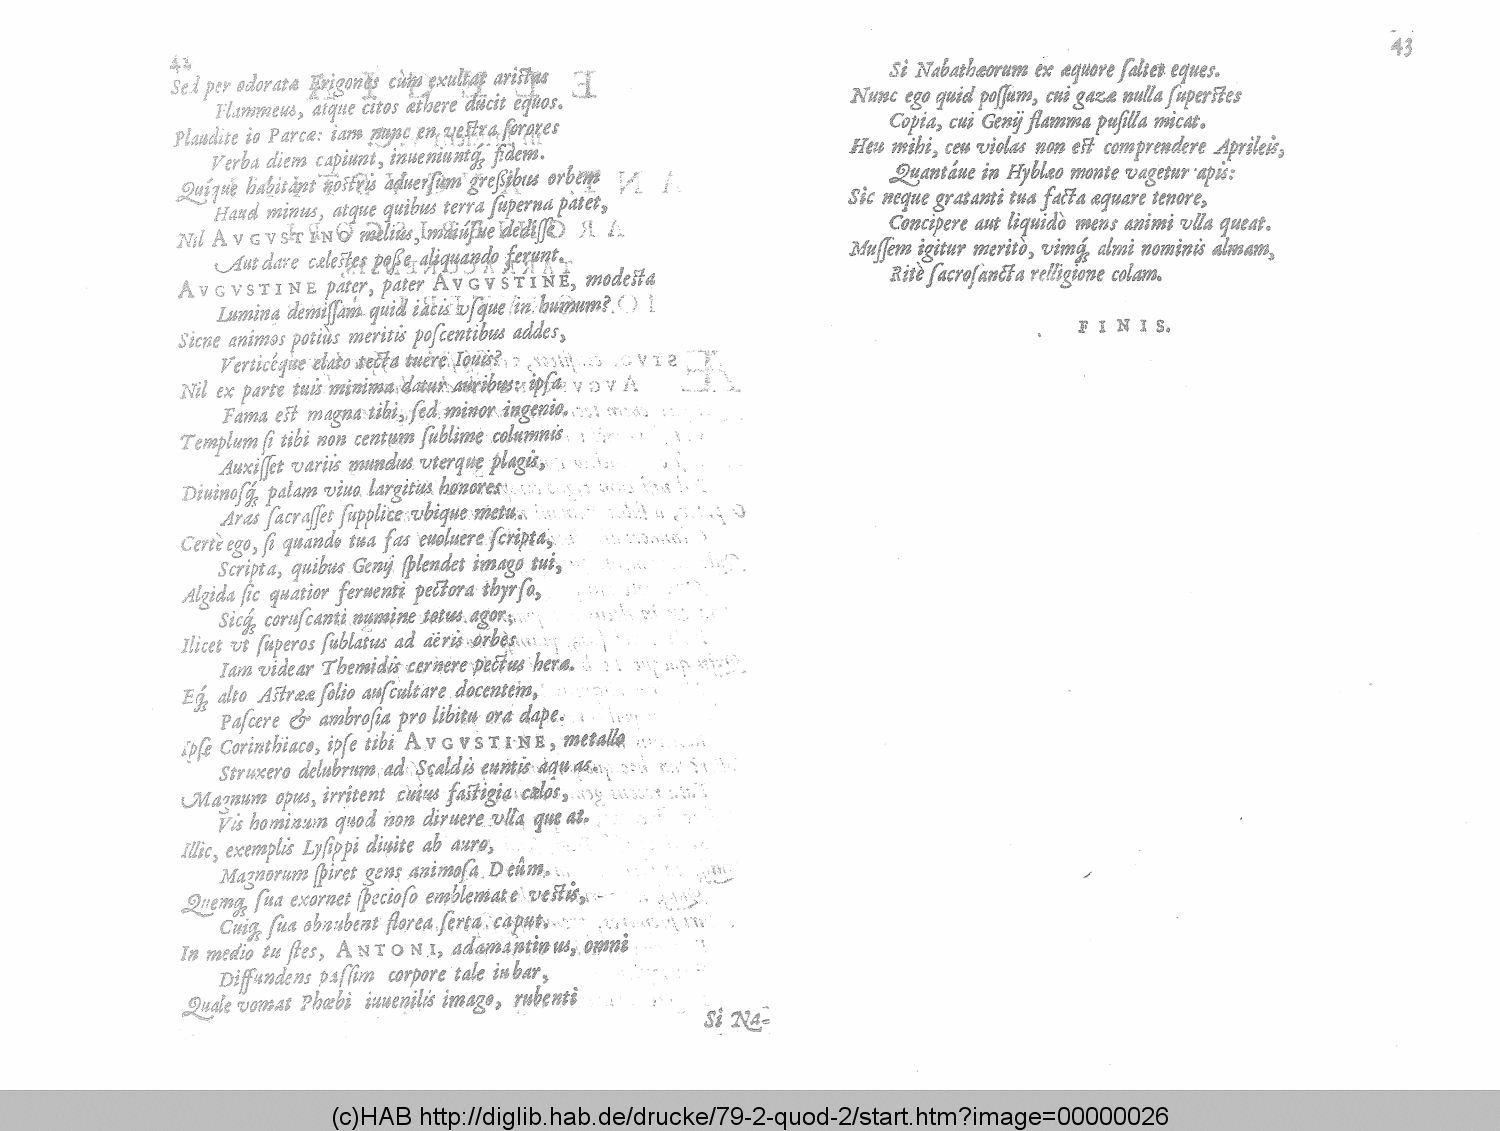 42
Sed per odorata Erigones cùm exultat aristas
Flammeus, atque citos æthere ducit equos.
Plaudite io Parcæ: iam nunc en vestra sorores
Verba diem capiunt, inueniuntq́; fidem.
Quíque habitant nostris aduersùm greßibus orbem
Haud minus, atque quibus terra superna patet,
Nil AVGVSTINO melius, maiúsue dedisse
Aut dare cælestes posse aliquando ferunt.
AVGVSTINE pater, pater AVGVSTINE, modesta
Lumina demissam quid iacis vsque in humum?
Sicne animos potiùs meritis poscentibus addes,
Verticéque elato tecta tuere Iouis?
Nil ex parte tuis minima datur auribus: ipsa
Fama est magna tibi, sed minor ingenio.
Templum si tibi non centum sublime columnis
Auxisset variis mundus vterque plagis,
Diuinosq́; palam viuo largitus honores
Aras sacrasset supplice vbique metu.
Certè ego, si quando tua fas euoluere scripta,
Scripta, quibus Genij splendet imago tui,
Algida sic quatior feruenti pectora thyrso,
Sicq́; coruscanti numine totus agor;
Ilicet vt superos sublatus ad aëris orbès
Iam videar Themidis cernere pectus heræ.
Eq́; alto Astrææ solio auscultare docentem,
Pascere & ambrosia pro libitu ora dape.
ipse Corinthiaco, ipse tibi AVGVSTINE, metallo
Struxero delubrum ad Scaldis euntis aquas.
Magnum opus, irritent cuius fastigia cælos,
Vis hominum quod non diruere vlla queat.
Illic, exemplis Lysippi diuite ab auro,
Magnorum spiret gens animosa Deûm.
Quemq; sua exornet specioso emblemate vestis,
Cuiq; sua obnubent florea serta caput.
In medio tu stes, ANTONI, adamantinus, omni
Diffundens passim corpore tale iubar,
Quale vomat Phœbi iuuenilis imago, rubenti
Si Na-
43
Si Nabathæorum ex æquore saltet eques.
Nunc ego quid possum, cui gazæ nulla superstes
Copia, cui Genij flamma pusilla micat.
Heu mihi, ceu violas non est comprendere Aprileis,
Quantáue in Hyblæo monte vagetur apis:
Sic neque gratanti tua facta æquare tenore,
Concipere aut liquidò mens animi vlla queat.
Mussem igitur meritò, vimq́; almi nominis almam,
Ritè sacrosancta relligione colam.
FINIS.
(c)HAB http://diglib.hab.de/drucke/79-2-quod-2/start.htm?image=00000026